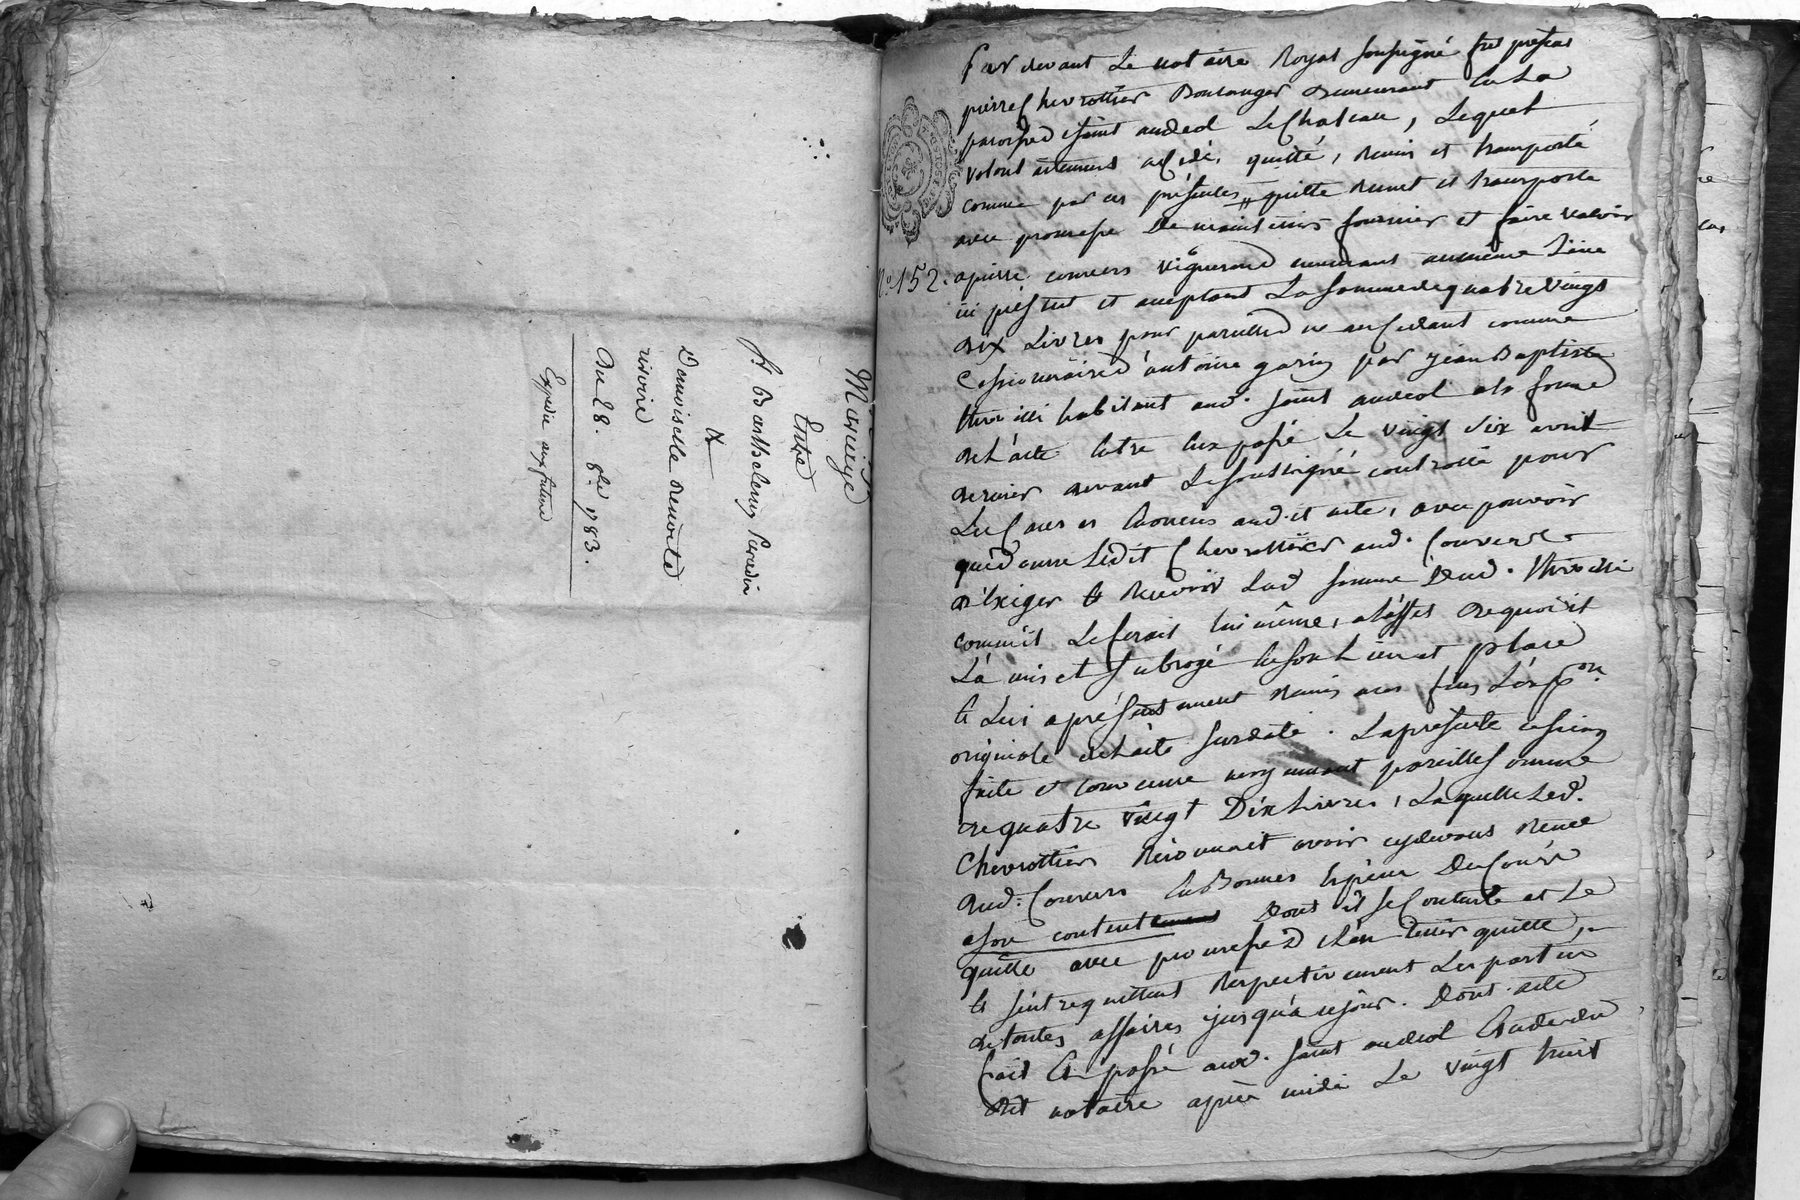 Mariage
Entre
Sr Barthelemy Paradis
&
Demoiselle benoite
rivoire
Du 28. 8bre 1783.
Expedié aux future
N.o 152.
Par devant Le notaire Royal soussigné fut present
pierre Chevrottier Boulanger demeurant en La
paroisse de saint andeol Le Chateau, Lequel
volontairement a cédé, quitté, remis et transporté
comme par ces présentes quitte remet et transporte
avec promesse De maintenir fournir et faire valoir
a pierre couvers vigneron demeurant au même Lieu
ici présent et acceptant La somme de quatre vingt
dix Livres pour pareille due au cedant comme
Cessionnaire d'antoine garin par jean Baptiste
thivilli habitant aud. saint andeol a la forme
de L'acte entre eux passé Le vingt six avril
dernier devant Le soussigné controllé pour
Les Causes enoncés audit acte, avec pouvoir
que donne Ledit Chevrottier aud. Couvers
d'exiger et Recevoir Lad somme Dud. thivilli
comm'il Le ferait lui même, a L'effet de quoi il
L'a mis et subrogé en son Lieu et place
et Lui a présentement Remis es mains L'expon.
originale de L'acte susdaté. La presente cession
faite et convenue moyennant pareille somme
de quatre vingt Dix Livres, Laquelle Led.
Chevrottier Reconnait avoir cydevant Recue
dud. Couvers en Bonnes Espèces De Cours
a son content Dont il se Contente et Le
quitte avec promesse de L'en tenir quitte,
et s'entrequittent Respectivement Les parties
de toutes affaires jusqu'a ce jour. Dont acte
fait et passé aud. saint andeol Etude du
dit notaire après midi Le vingt huit